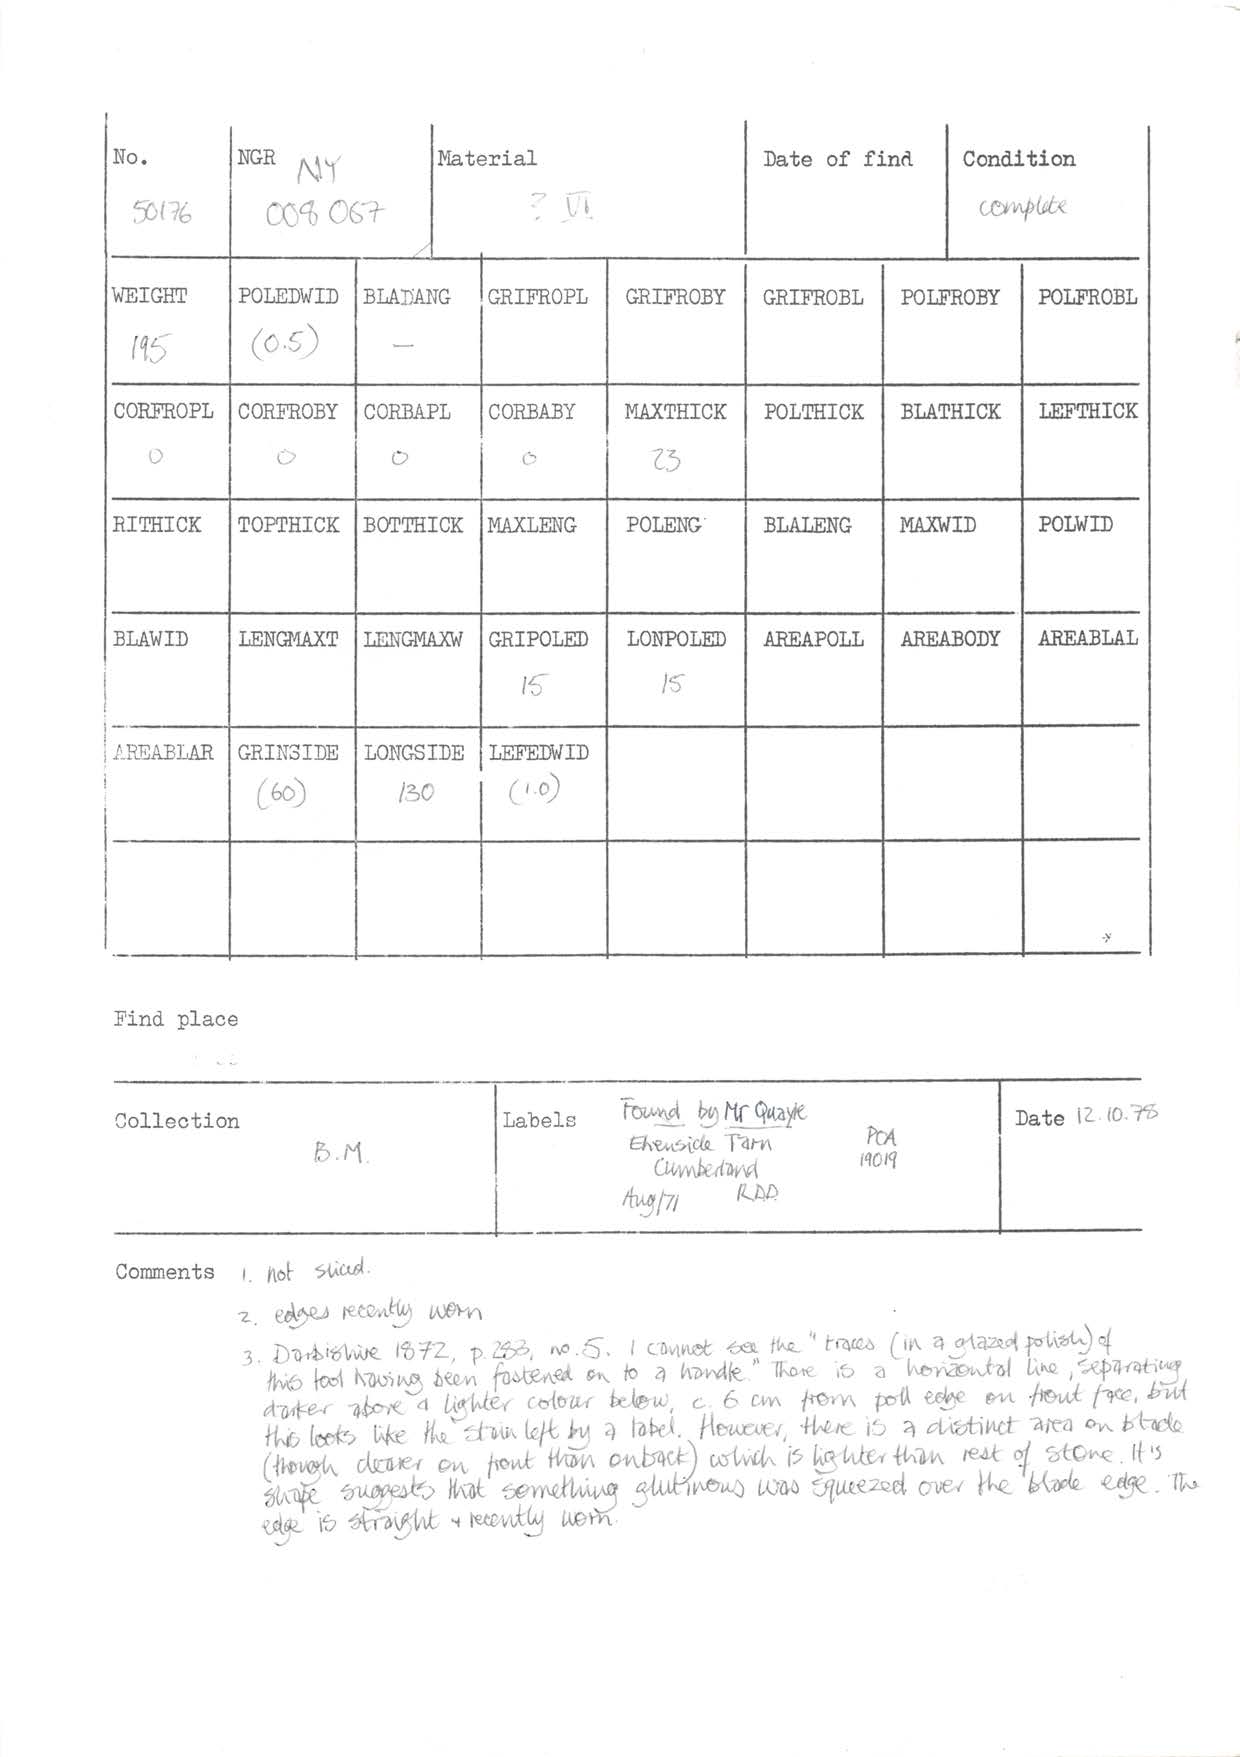 No. NGR NY Material Date of find Condition
50176 008 067 ? VI complete
WEIGHT POLEDWID BLADANG GRIFROPL GRIFROBY GRIFROBL POLFROBY POLFROBL
195 (0.5) —
CORFROPL CORFROBY CORBAPL CORBABY MAXTHICK POLTHICK BLATHICK LEFTHICK
0 0 0 0 23
RITHICK TOPTHICK BOTTHICK MAXLENG POLENG BLALENG MAXWID POLWID
BLAWID LENGMAXT LENGMAXW GRIPOLED LONPOLED AREAPOLL AREABODY AREABLAL
15 15
AREABLAR GRINSIDE LONGSIDE LEFEDWID
(60) 130 (1.0)
Find place
Collection
B.M.
Labels
Found by Mr Quayle
Ehenside Tarn
Cumberland
Aug/71 R.D.D.
POA
19019
Date 12.10.78
Comments 1. not sliced.
2. edges recently worn
3. Darbishire 1872, p.283, no.5. I cannot see the "traces (in a glazed polish) of
this tool having been fastened on to a handle." There is a horizontal line, separating
darker above a lighter colour below, c. 6 cm from poll edge on front face, but
this looks like the stain left by a label. However, there is a distinct area on blade
(though clearer on front than on back) which is lighter than rest of stone. It's
shape suggests that something glutinous was squeezed over the blade edge. The
edge is straight + recently worn.